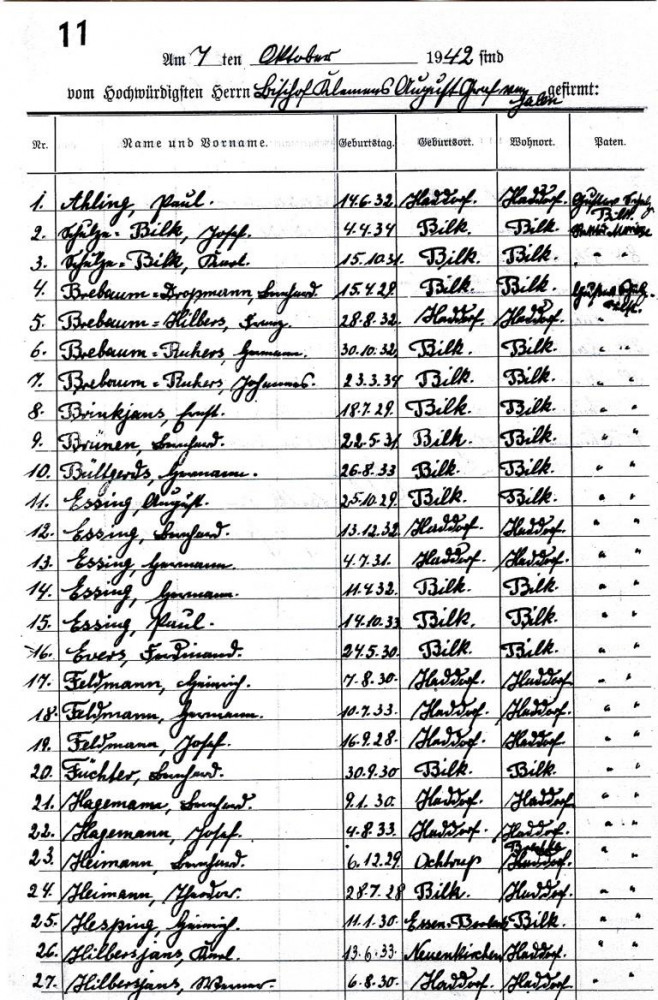 11
Am 7 ten Oktober 1942 sind
vom Hochwürdigsten Herrn Bischof Klemens August Graf von Galen gefirmt:
Nr. Name und Vorname. Geburtstag. Geburtsort. Wohnort. Paten.
1. Ahling, Paul. 14.6.32. Haddorf. Haddorf. Gustav Schulze
2. Schulze-Bilk, Josef. 4.4.34 Bilk. Bilk. Bilk.
3. Schulze-Bilk, Karl. 15.10.31. Bilk. Bilk. " "
4. Brebaum-Droßmann, Bernhard. 15.4.29. Bilk. Bilk.
5. Brebaum-Hilbers, Franz. 28.8.32. Haddorf. Haddorf.
6. Brebaum-Ruhers, Hermann. 30.10.32. Bilk. Bilk. " "
7. Brebaum-Ruhers, Johannes. 23.3.34 Bilk. Bilk. " "
8. Brinkjans, Ernst. 18.7.29. Bilk. Bilk. " "
9. Brünen, Bernhard. 22.5.31. Bilk. Bilk. " "
10. Bültgerds, Hermann. 26.8.33 Bilk. Bilk. " "
11. Essing, August. 25.10.29. Bilk. Bilk. " "
12. Essing, Bernhard. 13.12.32. Haddorf. Haddorf. " "
13. Essing, Hermann. 4.7.31. Haddorf. Haddorf. " "
14. Essing, Hermann. 11.4.32. Bilk. Bilk. " "
15. Essing, Paul. 14.10.33 Bilk. Bilk. " "
16. Evers, Ferdinand. 24.5.30. Bilk. Bilk. " "
17. Feldmann, Heinrich. 7.8.30. Haddorf. Haddorf. " "
18. Feldmann, Hermann. 10.7.33. Haddorf. Haddorf. " "
19. Feldmann, Josef. 16.9.28. Haddorf. Haddorf. " "
20. Füchter, Bernhard. 30.9.30 Bilk. Bilk. " "
21. Hagemann, Bernhard. 9.1.30. Haddorf. Haddorf " "
22. Hagemann, Josef. 4.8.33. Haddorf. Haddorf. " "
23. Heimann, Bernhard. 6.12.29 Ochtrup Haddorf. " "
24. Heimann, Theodor. 28.7.28 Bilk. Haddorf. " "
25. Hesping, Heinrich. 11.1.30. Essen-Borbeck Bilk. " "
26. Hilbersjans, Karl. 13.6.33. Neuenkirchen Haddorf. " "
27. Hilbersjans, Werner. 6.8.30. Haddorf. Haddorf. " "